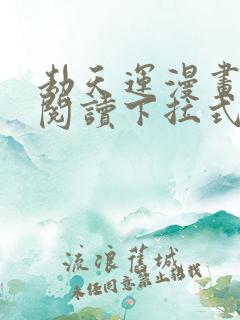 劫天運漫畫
閱讀下拉式
流浪舊城
未經同意禁止轉載